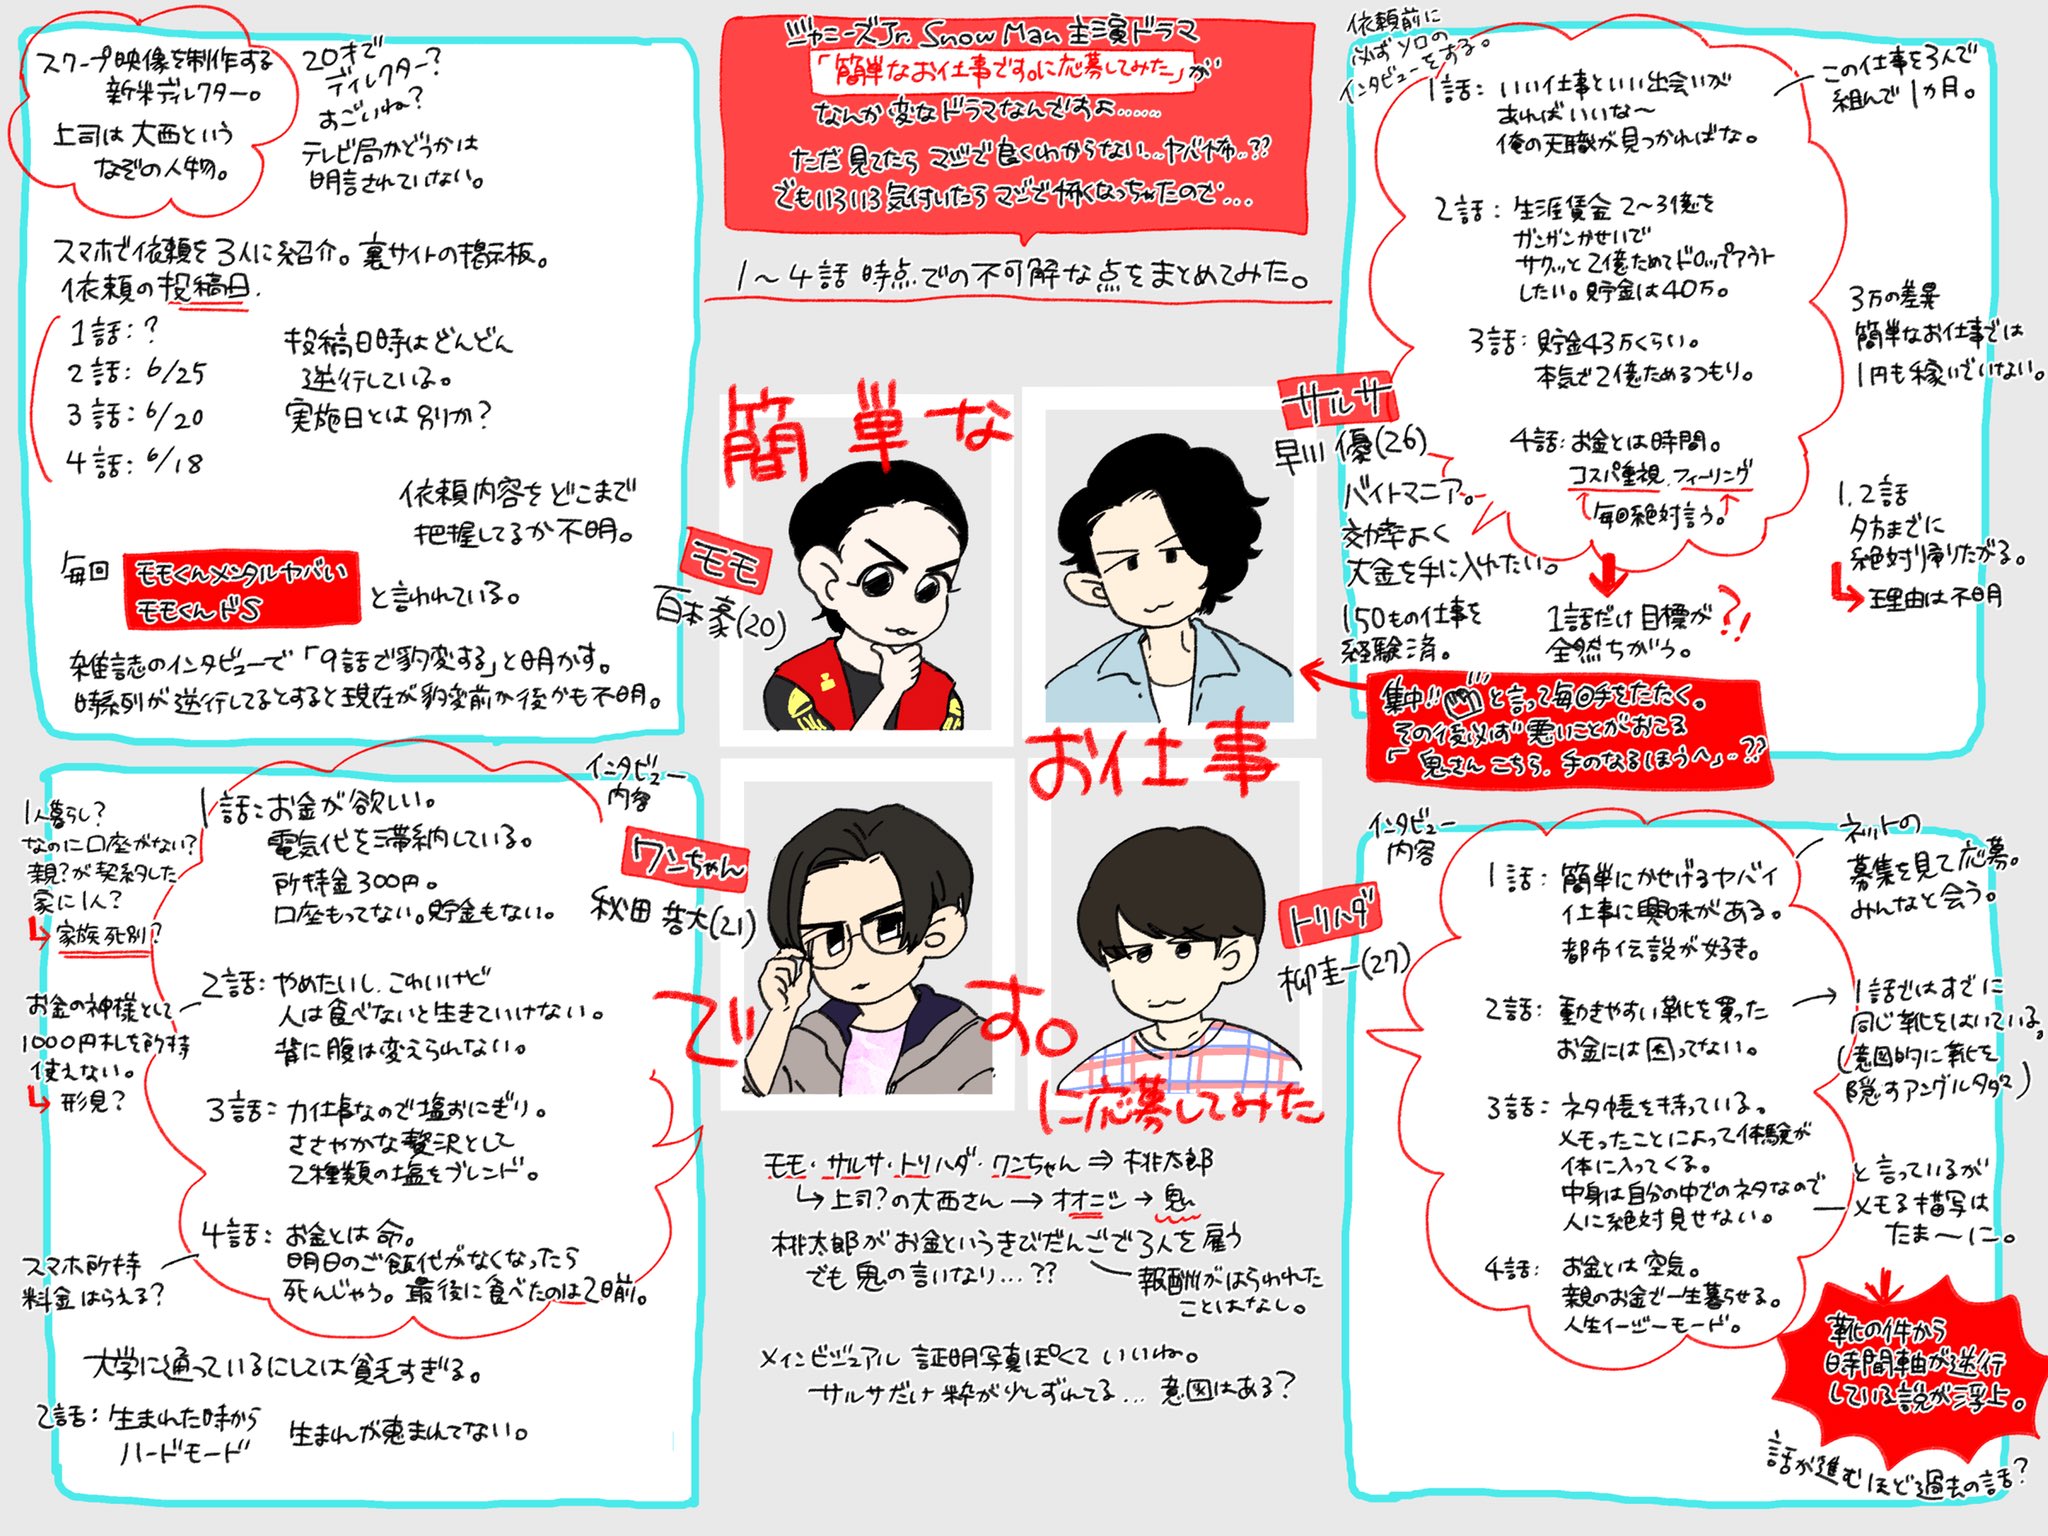 ジャニーズJr. Snow Man 主演ドラマ
「簡単なお仕事です。に応募してみた」が
なんか変なドラマなんですよ……
ただ見てたら マジで良くわからない…ヤバ怖..??
でもいろいろ気付いたら マジで怖くなっちゃたので…
1〜4話時点での不可解な点をまとめてみた。
スクープ映像を制作する
新米ディレクター。
上司は大西という
なぞの人物。
20才で
ディレクター?
すごいね?
テレビ局かどうかは
明言されていない。
スマホで依頼を3人に紹介。裏サイトの掲示板。
依頼の投稿日.
1話:?
2話: 6/25
3話: 6/20
4話: 6/18
投稿日時はどんどん
逆行している。
実施日とは別か?
依頼内容をどこまで
把握してるか不明。
毎回
モモくんメンタルヤバい
モモくんドS
と言われている。
雑誌のインタビューで「9話で豹変する」と明かす。
時系列が逆行してるとすると現在が豹変前か後かも不明。
モモ
百本豪(20)
依頼前に
必ずソロの
インタビューをする。
1話: いい仕事といい出会いが
あればいいな〜
俺の天職が見つかればな。
この仕事を3人で
組んで1カ月。
2話: 生涯賃金 2〜3億を
ガンガンかせいで
サクッと2億ためてドロップアウト
したい。貯金は40万。
3話: 貯金43万くらい。
本気で2億ためるつもり。
3万の差異
簡単なお仕事では
1円も稼いでいない。
4話: お金とは時間。
コスパ重視.フィーリング
毎回絶対言う。
1話だけ目標が
全然ちがう。
?!
1.2話
夕方までに
絶対帰りたがる。
理由は不明
サルサ
早川優(26)
バイトマニア。
効率よく
大金を手に入れたい。
150もの仕事を
経験済。
集中!! と言って毎回手をたたく。
その後必ず悪いことがおこる
「鬼さんこちら、手のなるほうへ」..??
簡単な
お仕事
です。
に応募してみた
インタビュー
内容
1話: お金が欲しい。
電気代を滞納している。
所持金300円。
口座もってない。貯金もない。
1人暮らし?
なのに口座がない?
親?が契約した
家に1人?
家族死別?
2話: やめたいし、こわいけど
人は食べないと生きていけない。
背に腹は変えられない。
お金の神様として
1000円札を所持
使えない。
形見?
3話: 力仕事なので塩おにぎり。
ささやかな贅沢として
2種類の塩をブレンド。
4話: お金とは命。
明日のご飯代がなくなったら
死んじゃう。最後に食べたのは2日前。
スマホ所持
料金はらえる?
大学に通っているにしては貧乏すぎる。
2話: 生まれた時から
ハードモード
生まれが恵まれてない。
ワンちゃん
秋田啓大(21)
モモ・サルサ・トリハダ・ワンちゃん⇒桃太郎
上司?の大西さん→オオニシ→鬼
桃太郎がお金というきびだんごで3人を雇う
でも鬼の言いなり…??
報酬がはらわれた
ことはなし。
メインビジュアル 証明写真ぽくていいね。
サルサだけ枠が少しずれてる… 意図はある?
トリハダ
柳圭一(27)
インタビュー
内容
1話: 簡単にかせげるヤバイ
仕事に興味がある。
都市伝説が好き。
ネットの
募集を見て応募。
みんなと会う。
2話: 動きやすい靴を買った
お金には困ってない。
1話ではすでに
同じ靴をはいている。
(意図的に靴を
隠すアングル多々)
3話: ネタ帳を持っている。
メモったことによって体験が
体に入ってくる。
中身は自分の中でのネタなので
人に絶対見せない。
と言っているが
メモる描写は
たま〜に。
4話: お金とは空気。
親のお金で一生暮らせる。
人生イージーモード。
靴の件から
時間軸が逆行
している説が浮上。
話が進むほど過去の話?